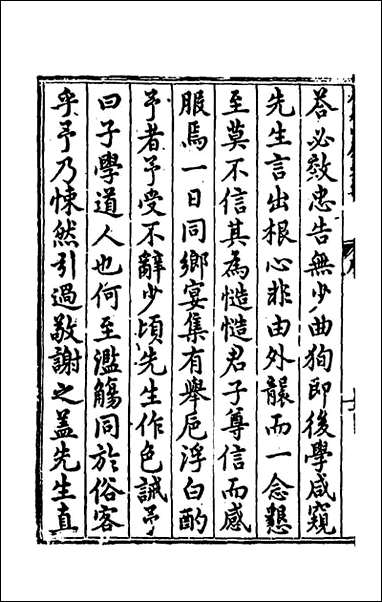 荅必效忠告無少曲狥即後學咸窺
先生言出根心非由外襲而一念懇
至莫不信其為慥慥君子尊信而感
服焉一日同鄉宴集有舉巵浮白酌
予者予受不辭少頃先生作色誡予
曰子學道人也何至濫觴同於俗客
乎予乃悚然引過敬謝之盖先生直